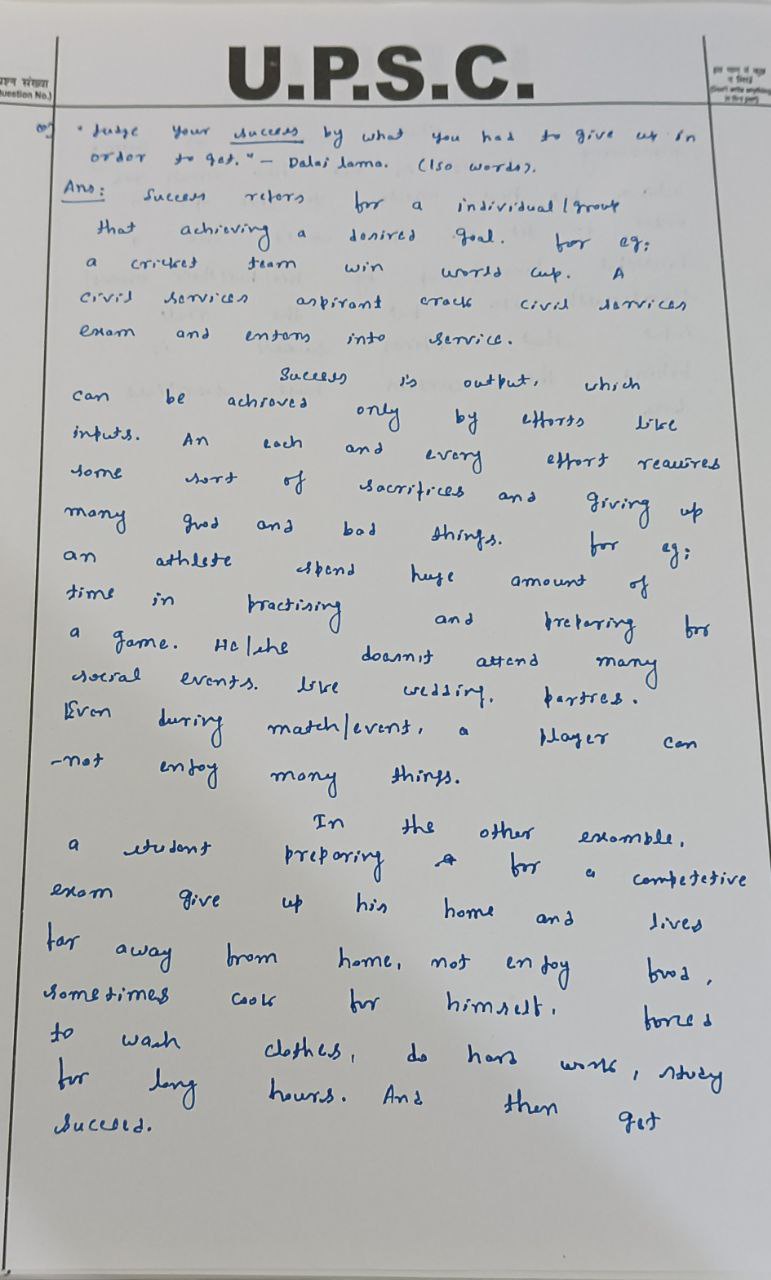 U.P.S.C.
प्रश्न संख्या
(Question No.)
" Judge your success by what you had to give up in
order to get. " – Dalai lama. (150 words).
Ans: Success refers for a individual/group
that achieving a desired goal. for eg:
a cricket team win world cup. A
civil services aspirant crack civil services
exam and enters into service.
Success is output, which
can be achieved only by efforts like
inputs. An each and every effort requires
some sort of sacrifices and giving up
many good and bad things. for eg:
an athlete spend huge amount of
time in practising and preparing for
a game. He/she doesn't attend many
social events. like wedding, parties.
Even during match/event, a player can
-not enjoy many things.
In the other example,
a student preparing for a competetive
exam give up his home and lives
far away from home, not enjoy food,
sometimes cook for himself, forced
to wash clothes, do hard work, study
for long hours. And then get
succeed.